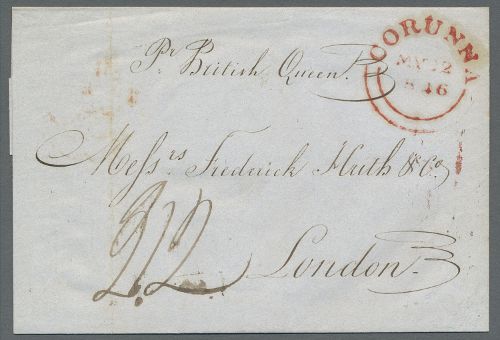 Pr. British Queen.
CORUNNA
Mess.rs Frederick Huth & Co.
2/2
London